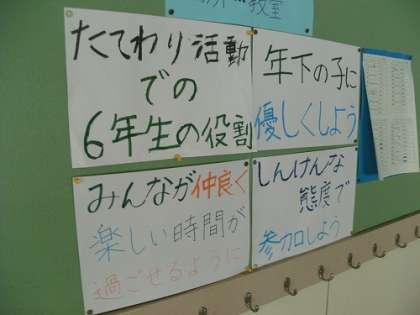 教室
たてわり活動
での
6年生の役割
年下の子に
優しくしよう
みんなが仲良く
楽しい時間が
過ごせるように
しんけんな
態度で
参加しよう